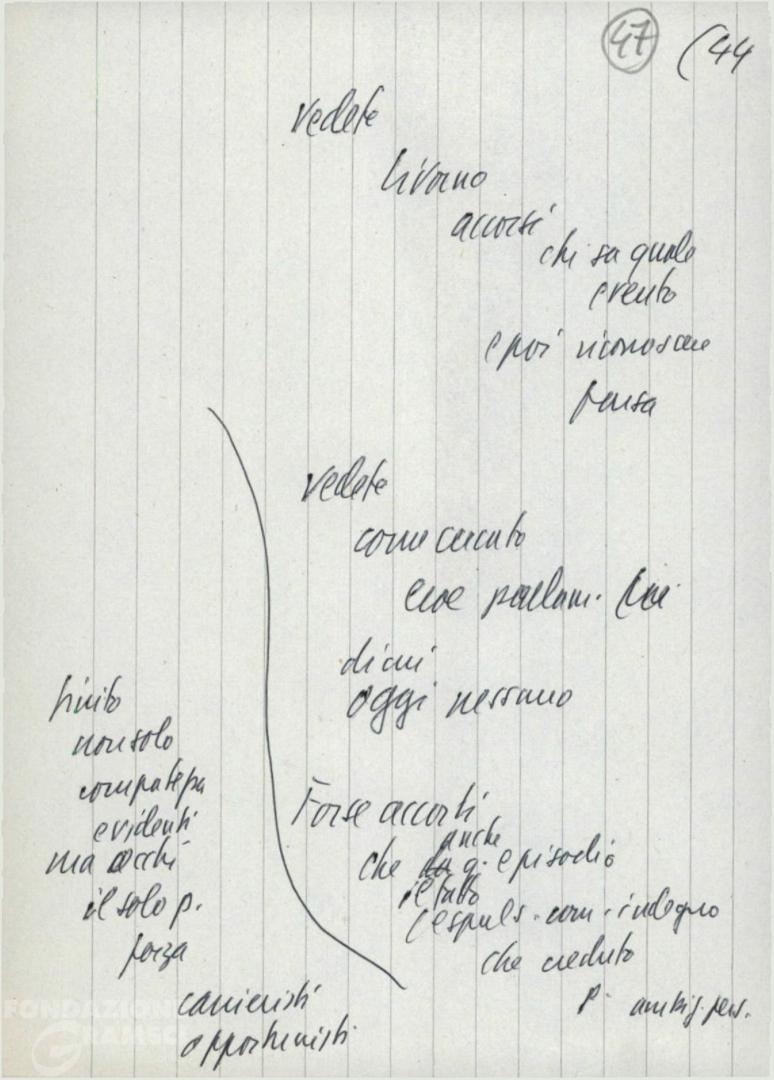 47 (44
vedete
Livorno
accorsi
chi sa quale
evento
e poi riconoscere
forza
vedete
come
cioè parlam.
di cui
oggi nessuno
Forse accorti
anche
che q. episodio
il fatto
espuls. com. indegno
che creduto
p. ambig. pers.
finito
non solo
evidenti
ma occhi
il solo p.
forza
carrieristi
opportunisti
FONDAZIONE
GRAMSCI